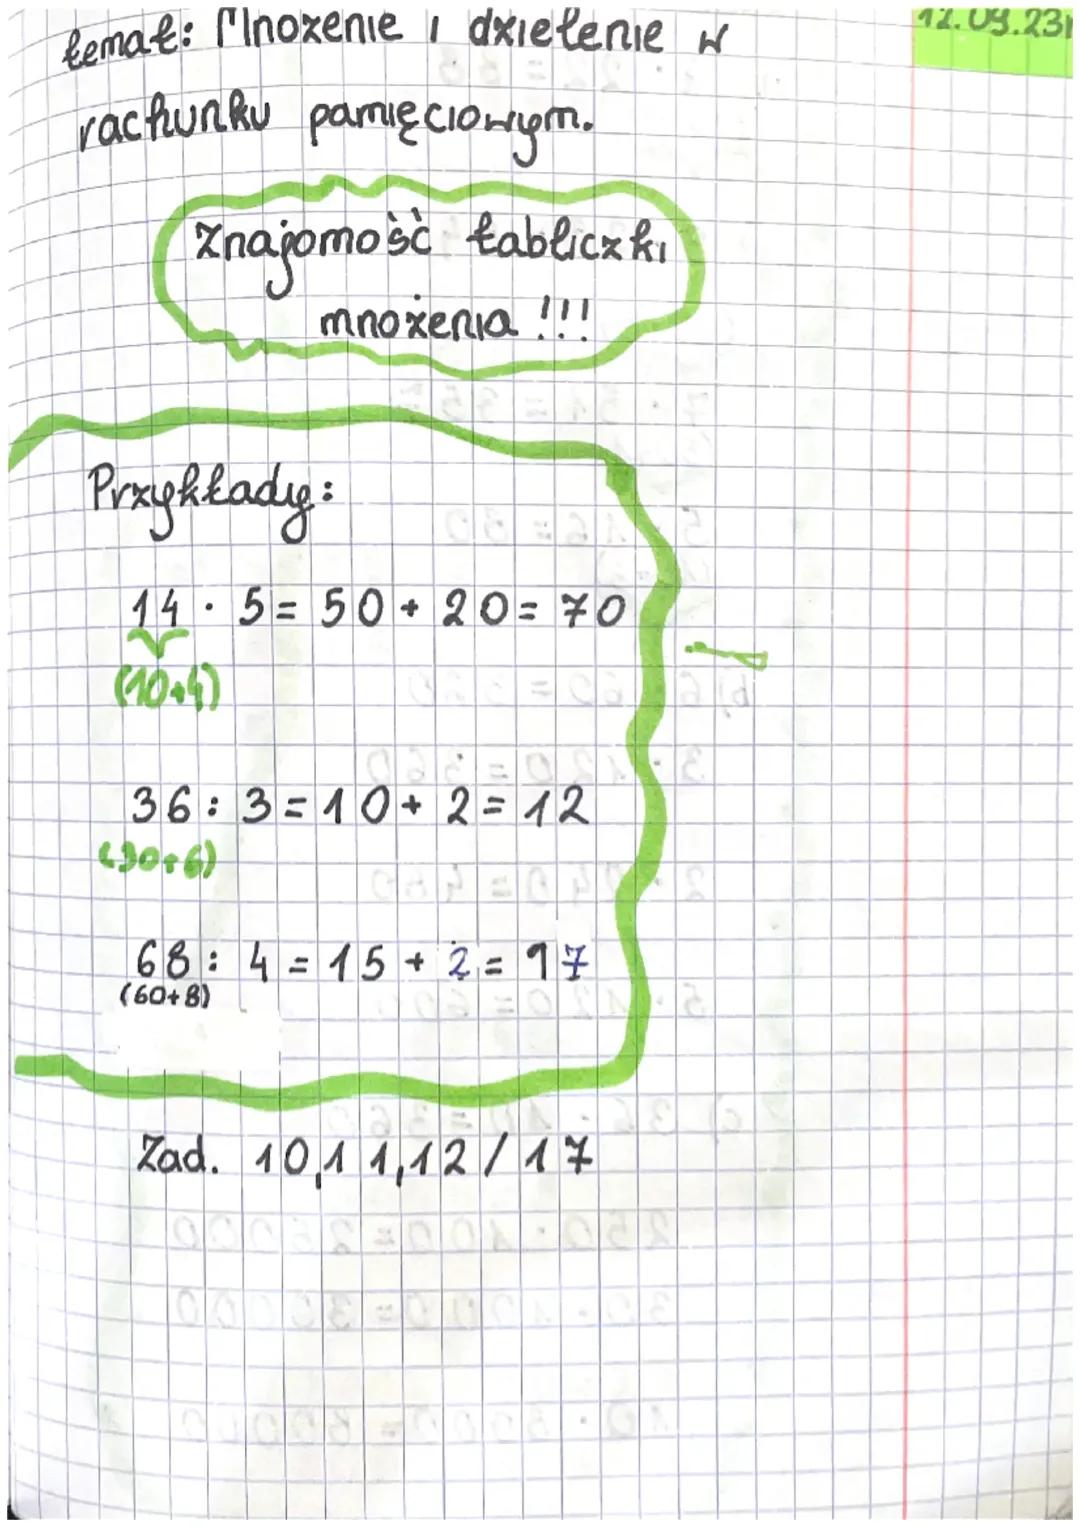 12.09.23r
temat: Mnożenie i dzielenie w
rachunku pamięciowym.
Znajomość tabliczki
mnożenia !!!
Przykłady:
14 · 5 = 50 + 20 = 70
(10+4)
36 : 3 = 10 + 2 = 12
(30+6)
68 : 4 = 15 + 2 = 17
(60+8)
Zad. 10,11,12/17